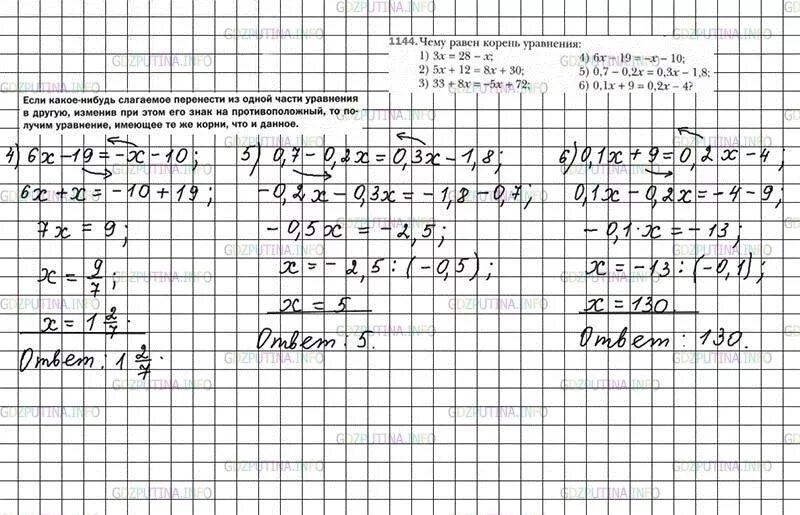 GDZPUTINA.INFO
1144. Чему равен корень уравнения:
1) 3x = 28 – x;
2) 5x + 12 = 8x + 30;
3) 33 + 8x = –5x + 72;
4) 6x – 19 = –x – 10;
5) 0,7 – 0,2x = 0,3x – 1,8;
6) 0,1x + 9 = 0,2x – 4?
Если какое-нибудь слагаемое перенести из одной части уравнения
в другую, изменив при этом его знак на противоположный, то по-
лучим уравнение, имеющее те же корни, что и данное.
4) 6x – 19 = –x – 10;
6x + x = –10 + 19;
7x = 9;
x = 9/7;
x = 1 2/7.
Ответ: 1 2/7.
5) 0,7 – 0,2x = 0,3x – 1,8;
–0,2x – 0,3x = –1,8 – 0,7;
–0,5x = –2,5;
x = –2,5 : (–0,5);
x = 5
Ответ: 5.
6) 0,1x + 9 = 0,2x – 4;
0,1x – 0,2x = –4 – 9;
–0,1·x = –13;
x = –13 : (–0,1);
x = 130.
Ответ: 130.